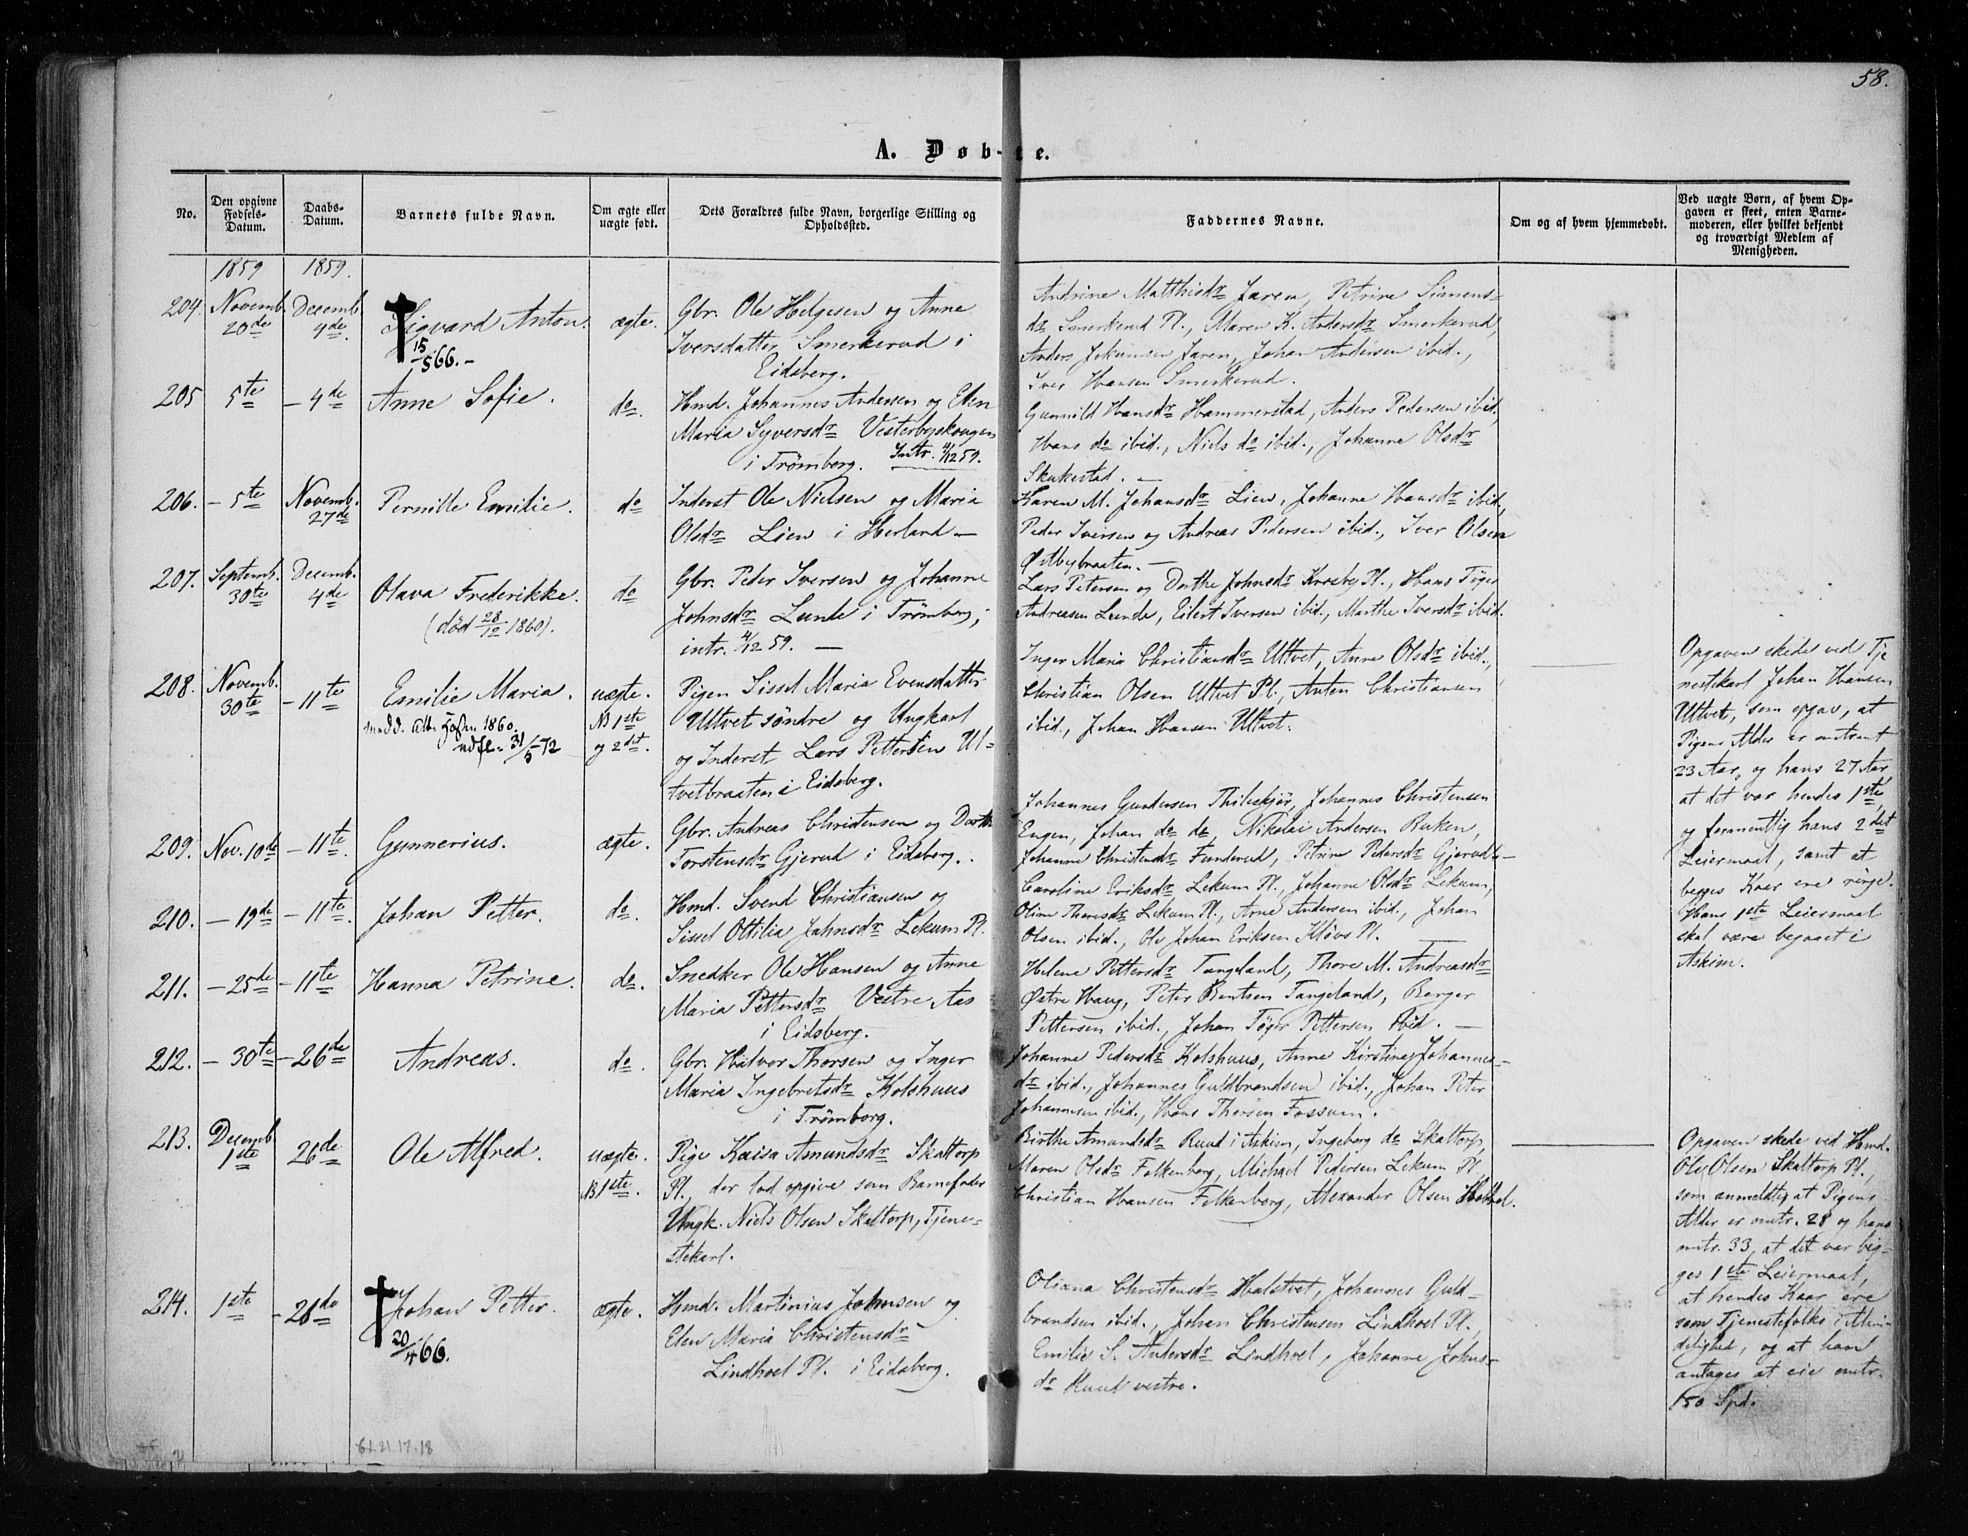 58.
A. Døb-te.
No.
Den opgivne Fødsels-Datum.
Daabs-Datum.
Barnets fulde Navn.
Om ægte eller uægte født.
Dets Forældres fulde Navn, borgerlige Stilling og Opholdssted.
Faddernes Navne.
Om og af hvem hjemmedøbt.
Ved uægte Børn, af hvem Op-
gaven er skeet, enten Barne-
moderen, eller hvilket bekjendt
og troværdigt Medlem af
Menigheden.
1859 1859.
204. Novemb. 20de Decemb. 4de. Sigvard Anton. ægte.
15/5 66.-
Gbr. Ole Helgesen og Anne
Iversdatter Smerkerud i
Eidsberg.
Andrine Matthisdr Jaren, Petrine Simens-
dr Smerkerud Pl., Maren K. Andersdr Smerkerud,
Anders Jaren, Johan Andersen ibid.,
Iver Hansen Smerkerud.
205 5te - 4de Anne Sofie. do.
Hmd. Johannes Andersen og Elen
Maria Syversdr Vesterbyskougen
i Trømborg. Intr. 4/12 59.
Gunnild Hansdr Hammerstad, Anders Pedersen ibid,
Hans do ibid., Niels do ibid., Johanne Olsdr
Skukestad. -
206. - 5te Novemb. 27de Pernille Emilie. do
Inderst Ole Nielsen og Maria
Olsdr Lien i Herland -
Karen M. Johansdr Lien, Johanne Hansdr ibid,
Peder Iversen og Andreas Pedersen ibid., Iver Olsen
Østbybraaten. -
207. Septemb. 30te Decemb. 4de Olava Frederikke. do
(død 28/12 1860).
Gbr. Peder Iversen og Johanne
Johnsdr Lunde i Trømborg;
intr. 4/12 59. -
Lars Petersen og Dorthe Johnsdr Korsby Pl., Hans Tøger
Andreasen Lunde, Eilert Iversen ibid., Marthe Iversdr ibid.
208. Novemb. 30te - 11te Emilie Maria. uægte.
N 1ste
og 2det.
31/5 72
Pigen Sissel Maria Evensdatter
Ultvet søndre og Ungkarl
og Inderst Lars Pettersen Ul-
tvetbraaten i Eidsberg.
Inger Maria Christiansdr Ultvet, Anne Olsdr ibid.,
Christian Olsen Ultvet Pl., Anton Christiansen
ibid., Johan Hansen Ultvet.
Opgaven skede ved Tje
nestekarl Johan Hansen
Ultvet, som opgav, at
Pigens Alder er omtrent
23 Aar, og hans 27 Aar
at det var hendes 1ste,
og formentlig hans 2det
Leiermaal, samt at
begges Kaar ere ringe.
Hans 1ste Leiermaal
skal være begaaet i
Askim.
209. Nov. 10de - 11te. Gunnerius. ægte.
Gbr. Andreas Christensen og Dorthe
Torstensdr Gjerud i Eidsberg.
Johannes Gundersen Thileskjør, Johannes Christensen
Engen, Johan do do, Nikolai Andersen Ruken,
Johanne Christensdr Funderud, Petrine Pedersdr Gjerud. -
210. - 19de - 11te. Johan Petter. do.
Hmd. Svend Christiansen og
Sissel Ottilia Jahnsdr Lekum Pl.
Caroline Eriksdr Lekum Pl., Johanne Olsdr Lekum,
Oline Thoresdr Lekum Pl., Arne Andersen ibid., Johan
Olsen ibid., Ole Johan Eriksen Kløvs Pl.
211. - 25de - 11te Hanna Petrine. do.
Snedker Ole Hansen og Anne
Maria Pettersdr Vestre Aas
i Eidsberg.
Helene Pettersdr Tangeland, Thore M. Andreasdr
Østre Haug, Peter Bentsen Tangeland, Borger
Pettersen ibid., Johan Tøger Pettersen ibid. -
212. - 30te - 26de Andreas. do.
Gbr. Halvor Thorsen og Inger
Maria Ingebretsdr Kolshuus
i Trømborg.
Johanne Pedersdr Kolshuus, Anne Kirstine Johannes-
dr ibid., Johannes Guldbrandsen ibid., Johan Peter
Johannesen ibid., Hans Thorsen Fossum.
213. Decemb. 1ste 26de Ole Alfred. uægte.
N 1ste.
Pige Kaisa Amundsdr Skaltorp
Pl., der lod opgive som Barnefader
Ungk. Niels Olsen Skaltorp, Tjene-
stekarl.
Birthe Amundsdr Ruud i Askim, Ingeborg do Skaltorp,
Maren Olsdr Falkenborg, Michael Pedersen Lekum Pl.,
Christian Hansen Falkenborg, Alexander Olsen
Opgaven skede ved Hmd.
Ole Olsen Skaltorp Pl.,
som anmeldte, at Pigens
Alder er omtr. 28 og hans
omtr. 33, at det var beg-
ges 1ste Leiermaal,
at hendes Kaar ere
som Tjenestefolks i Almin-
delighed, og at han
antages at eie omtr.
150 Spd.
214. 1ste - 26de Johan Petter. ægte.
20/4 66.
Hmd. Martinius Johnsen og
Elen Maria Christensdr
Lindhoel Pl. i Eidsberg.
Oliana Christensdr Haltvet, Johannes Guld-
brandsen ibid., Johan Christensen Lindhoel Pl.,
Emilie S. Andersdr Lindhoel, Johanne Johns-
dr Ruud vestre.
61.21.17.18